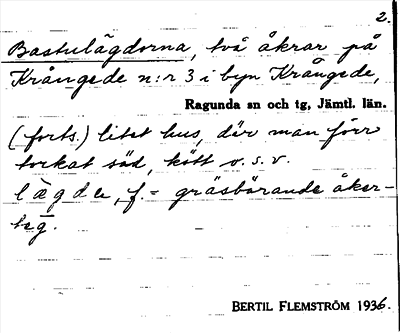 2.
Bastulägdorna, två åkrar på
Krångede n:r 3 i byn Krångede,
Ragunda sn och tg, Jämtl. län.
(forts.) litet hus, där man förr
torkat säd, kött o.s.v.
lägde, f. = gräsbärande åker-
teg.
BERTIL FLEMSTRÖM 1936.